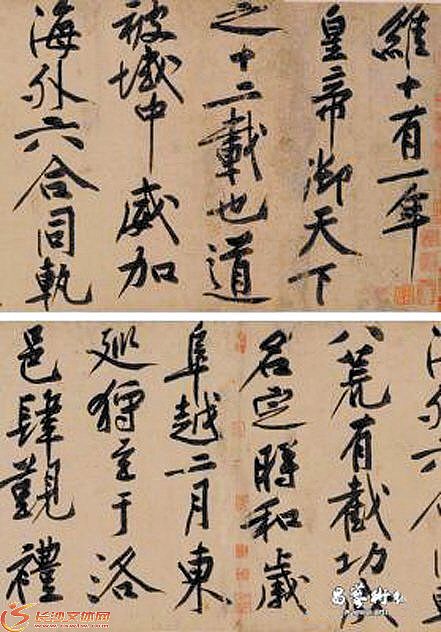 維十有一年
皇帝御天下
之十二載也道
被域中威加
海外六合同軌
八荒有截功
名定時和歲
阜越二月東
巡狩至于洛
邑肆覲禮
长沙文体网